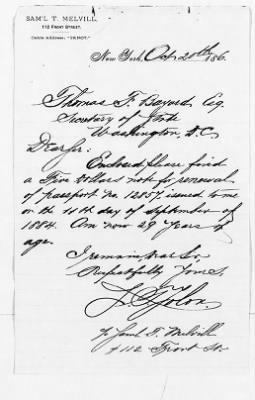 SAM'L T. MELVILL,
112 FRONT STREET.
New York, Oct 20th 186
Thomas F. Bayard Esq
Secretary of State
Washington, D.C.
Dear Sir:
Enclosed please find
a Five Dollars note for renewal
of passport No. 12857, issued to me
on the 11th day of September of
1884. Am now 29 years of
age.
I remain, Dear Sir,
Respectfully Yours
% Saml T. Melvill
112 Front St.